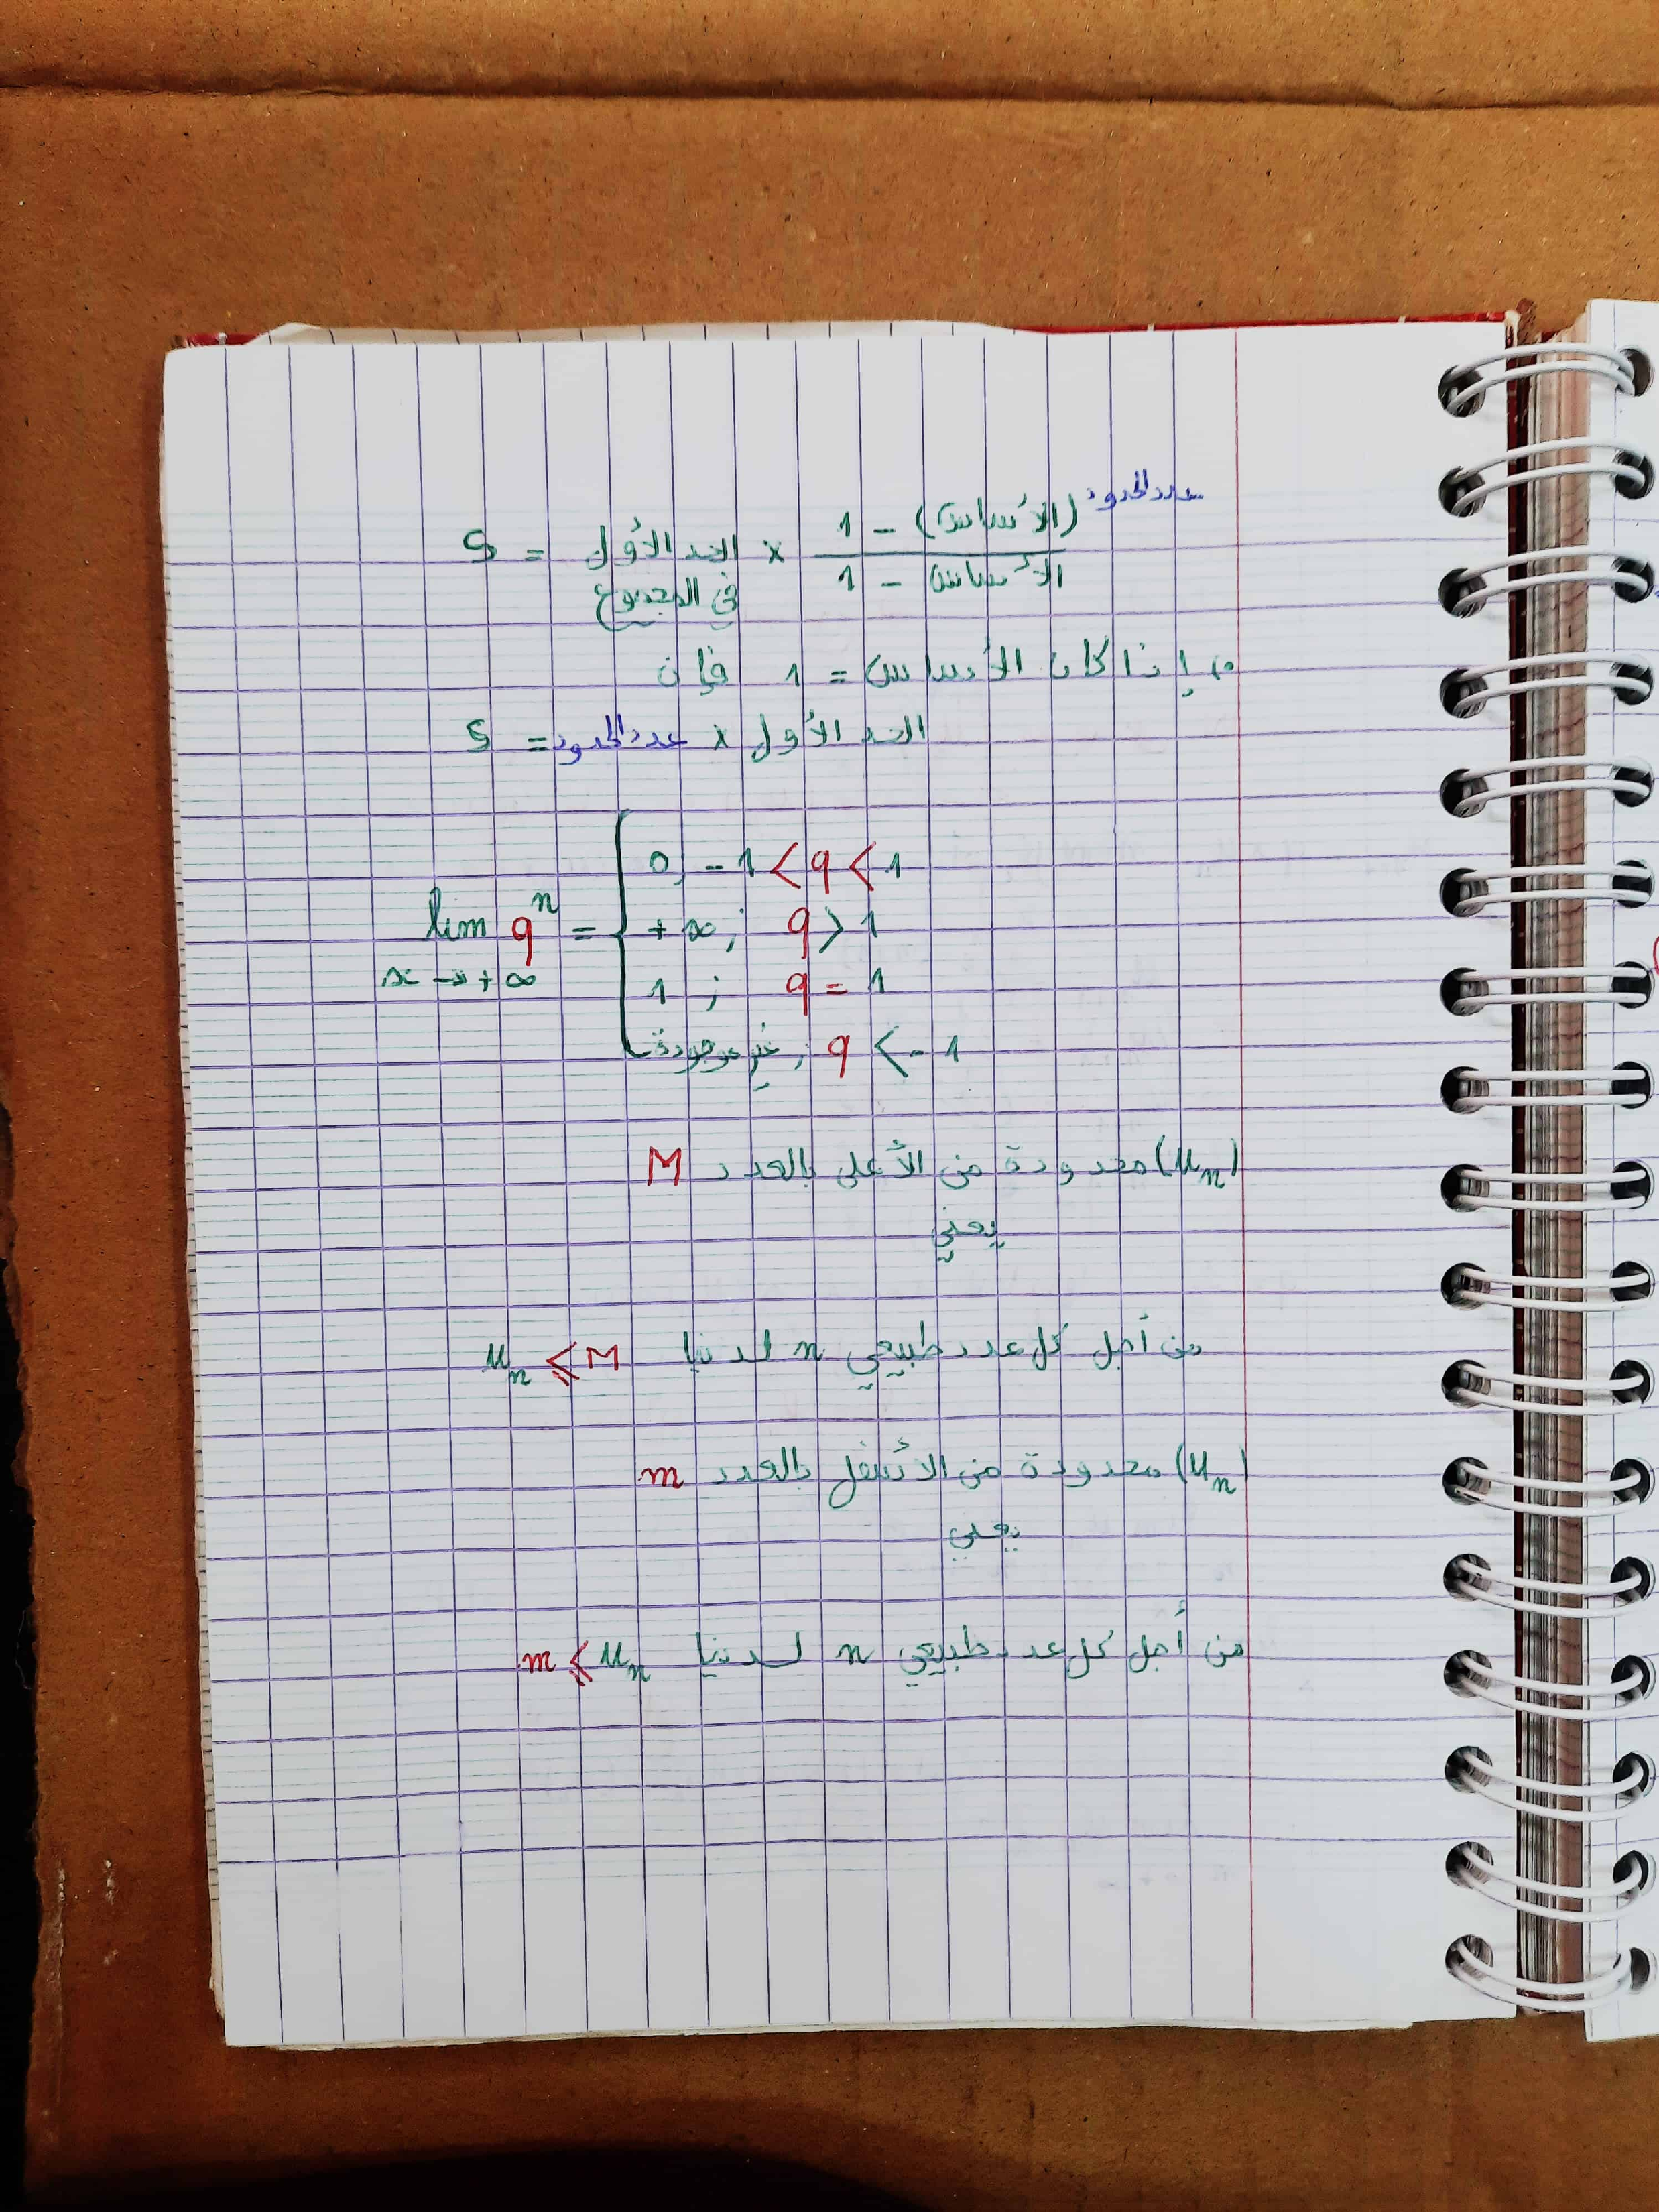 S = الحد الأول في المجموع × (1 - (الأساس)^عدد الحدود) / (1 - الأساس)
* إذا كان الأساس = 1 فإن
S = عدد الحدود × الحد الأول
lim q^n = { 0 ; -1 < q < 1
x → +∞
+∞ ; q > 1
1 ; q = 1
غير موجودة ; q < -1
(u_n) محدودة من الأعلى بالعدد M
يعني
من أجل كل عدد طبيعي n لدينا u_n ⩽ M
(u_n) محدودة من الأسفل بالعدد m
يعني
من أجل كل عدد طبيعي n لدينا m ⩽ u_n